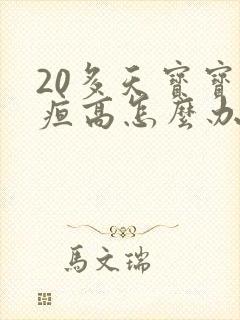 20多天寶寶
疸高怎麼办
馬文瑞